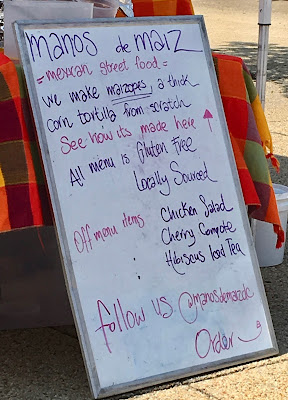 manos de maiz
= mexican street food =
we make maizopes, a thick
corn tortilla from scratch
See how its made here ↑
All menu is Gluten Free
Locally Sourced
Off menu items : Chicken Salad
Cherry Compote
Hibiscus Iced Tea
follow us @manosdemaizdc
Order